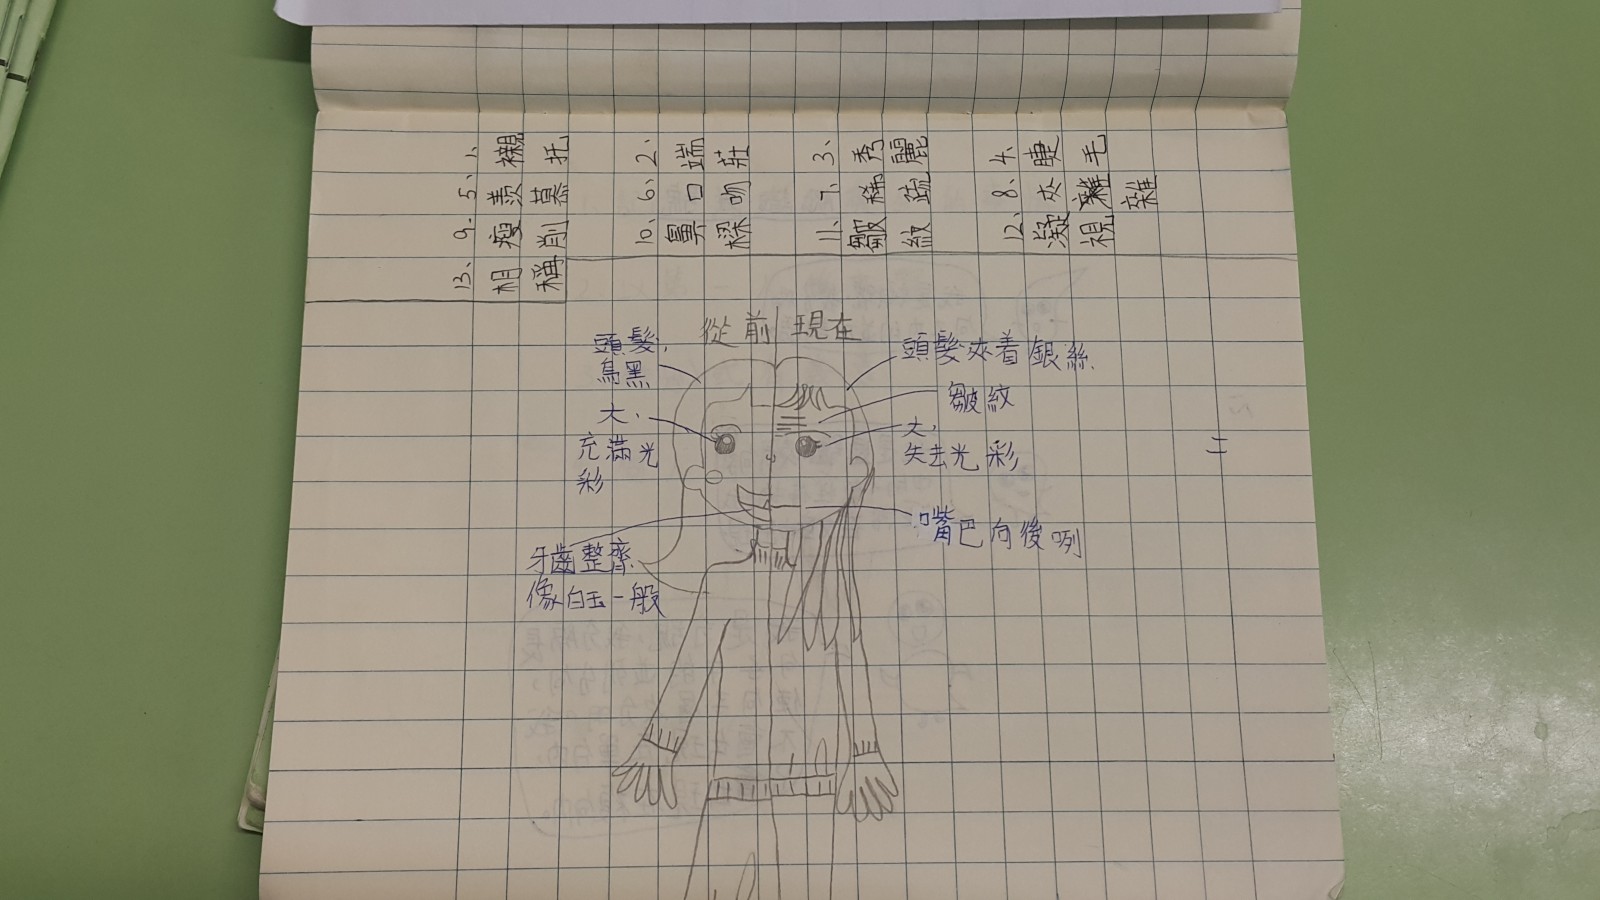 1、襯托 2、端莊 3、秀麗 4、睫毛
5、羨慕 6、口吻 7、稀疏 8、夾雜
9、瘦削 10、鼻樑 11、皺紋 12、凝視
13、相稱
從前 現在
頭髮,
烏黑
頭髮夾着銀絲
皺紋
大,
充滿光
彩
大,
失去光彩
二
嘴巴向後咧
牙齒整齊
像白玉一般